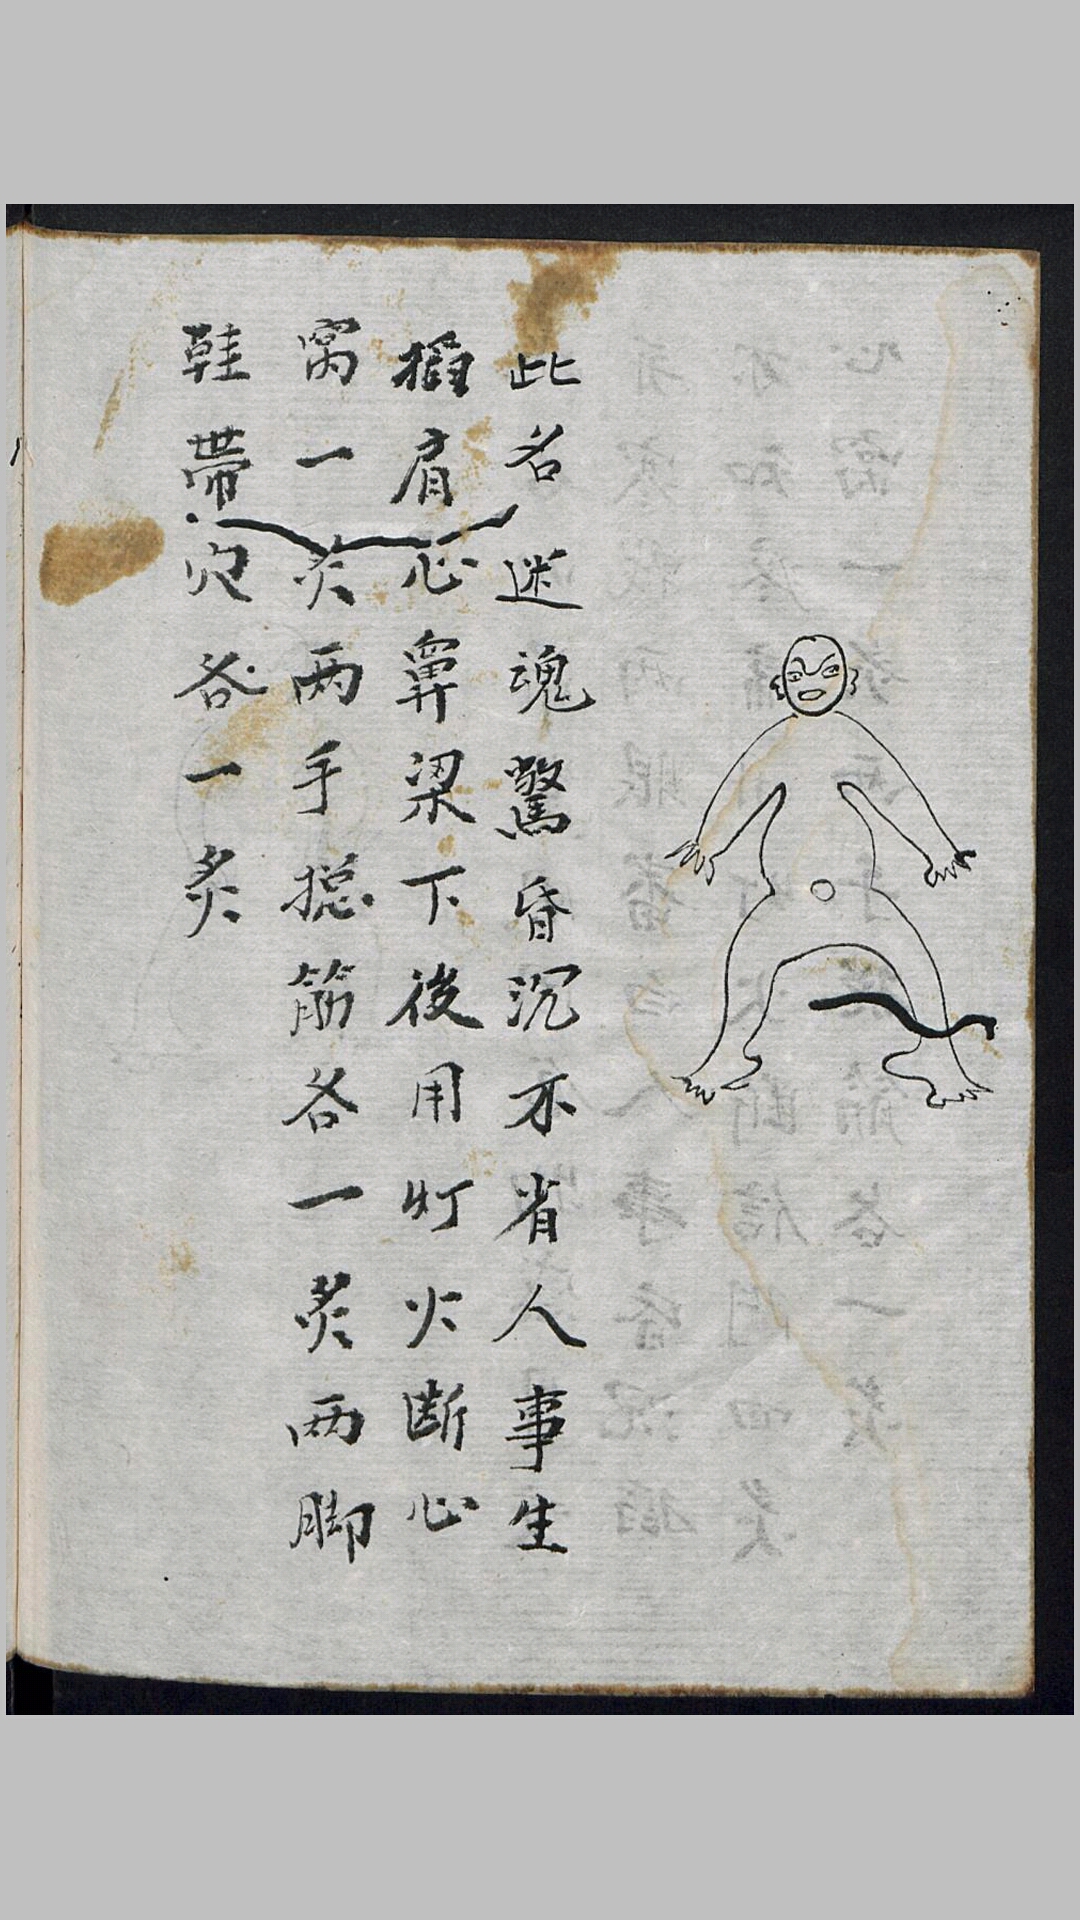 此名迷魂驚昏沉不省人事生
搯肩心鼻梁下後用灯火断心
窝一炙两手搃筋各一炙两脚
鞋帶穴各一炙